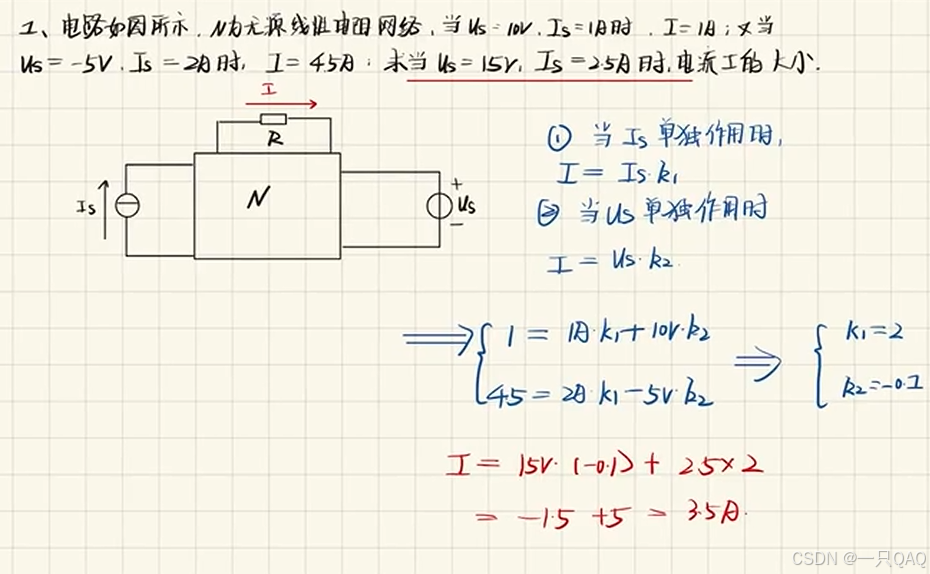 工、电路如图所示，N为无源线性电阻网络，当Us=10V，Is=1A时，I=1A；又当
Us=-5V，Is=2A时，I=4.5A；求当Us=15V，Is=2.5A时，电流I的大小.
I
R
Is
N
+
Us
-
① 当Is单独作用时,
I = Is·k₁
② 当Us单独作用时
I = Us·k₂
⟹ { 1 = 1A·k₁+10V·k₂ ⟹ { k₁=2
4.5 = 2A·k₁-5V·k₂ k₂=-0.1
I = 15V·(-0.1) + 2.5×2
= -1.5 +5 = 3.5A.
CSDN @一只QAQ